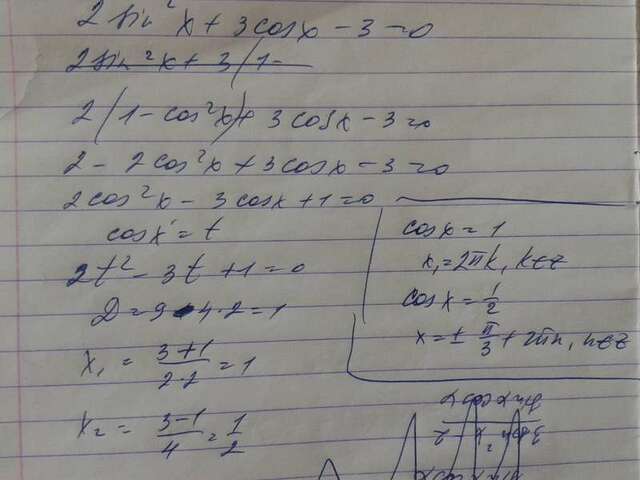 2 sin² x + 3cosx - 3 = 0
2 sin² x + 3(1 -
2(1 - cos²x) + 3cosx - 3 = 0
2 - 2cos²x + 3cosx - 3 = 0
2cos²x - 3cosx + 1 = 0
cosx = t
2t² - 3t + 1 = 0
D = 9 - 4·2 = 1
x₁ = (3+1)/(2·2) = 1
x₂ = (3-1)/4 = 1/2
cosx = 1
x₁ = 2πk, k∈z
cosx = 1/2
x = ± π/3 + 2πn, n∈z